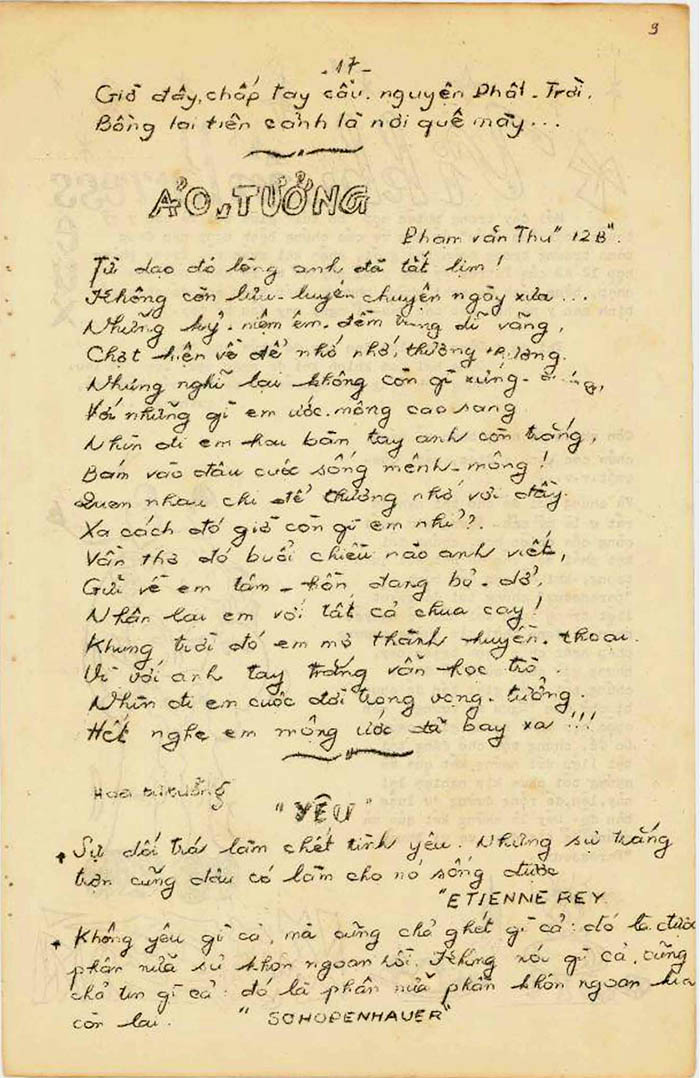 9
-17-
Giờ đây, chấp tay cầu nguyện Phật - Trời.
Bồng lai tiên cảnh là nơi quê mày...
ẢO-TƯỞNG
Phạm văn Thư "12B".
Từ dạo đó lòng anh đã tắt lịm!
Không còn lưu-luyến chuyện ngày xưa...
Những kỷ-niệm êm-đềm trong dĩ vãng,
Chợt hiện về để nhớ nhớ, thương thương.
Nhưng nghĩ lại không còn gì xứng-
Với những gì em ước-mộng cao sang
Nhìn đi em hai bàn tay anh còn trắng,
Bám vào đâu cuộc sống mênh-mông!
Quen nhau chi để thương nhớ vơi đầy.
Xa cách đó giờ còn gì em nhỉ??.
Vần thơ đó buổi chiều nào anh viết,
Gửi về em tâm-hồn đang bỏ-dở.
Nhận lại em với tất cả chua cay!
Khung trời đó em mơ thành huyền-thoại.
Vì với anh tay trắng vẫn học trò.
Nhìn đi em cuộc đời trong vọng-tưởng.
Hết nghe em mộng ước đã bay xa!!!
Hoa
"YÊU"
Sự dối trá làm chết tình yêu. Những sự trắng
trợn cũng đâu có làm cho nó sống được
"ETIENNE REY.
Không yêu gì cả, mà cũng chả ghét gì cả: đó là được
phân nửa sự khôn ngoan rồi. Không nói gì cả, cũng
chả tin gì cả: đó là phân nửa phần khôn ngoan kia
còn lại. "SCHOPENHAUER"